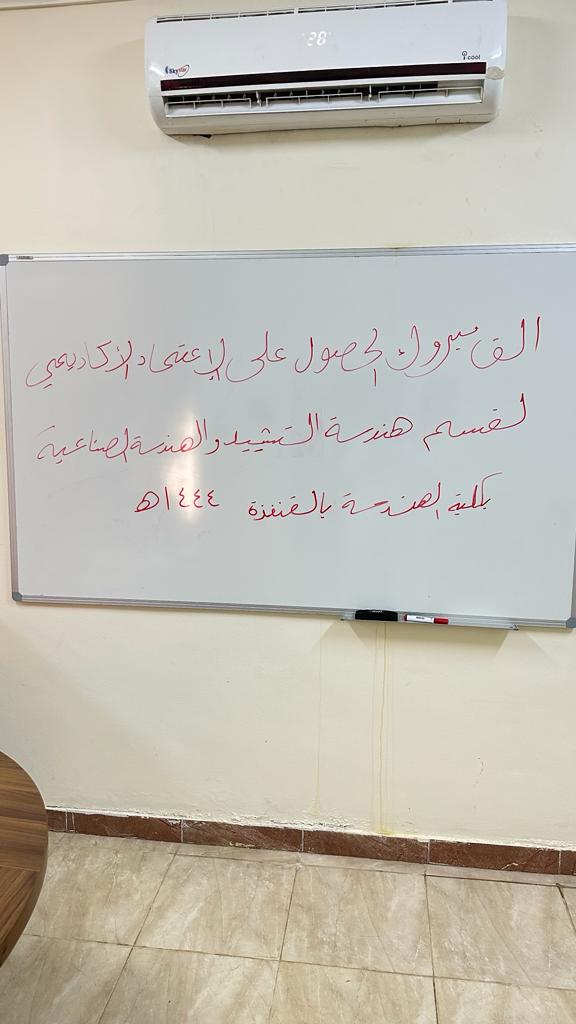 28
Skystar
i cool
الف مبروك الحصول على الإعتماد الأكاديمي
لقسم هندسة التشييد والهندسة الصناعية
بكلية الهندسة بالقنفذة ١٤٤٤هـ